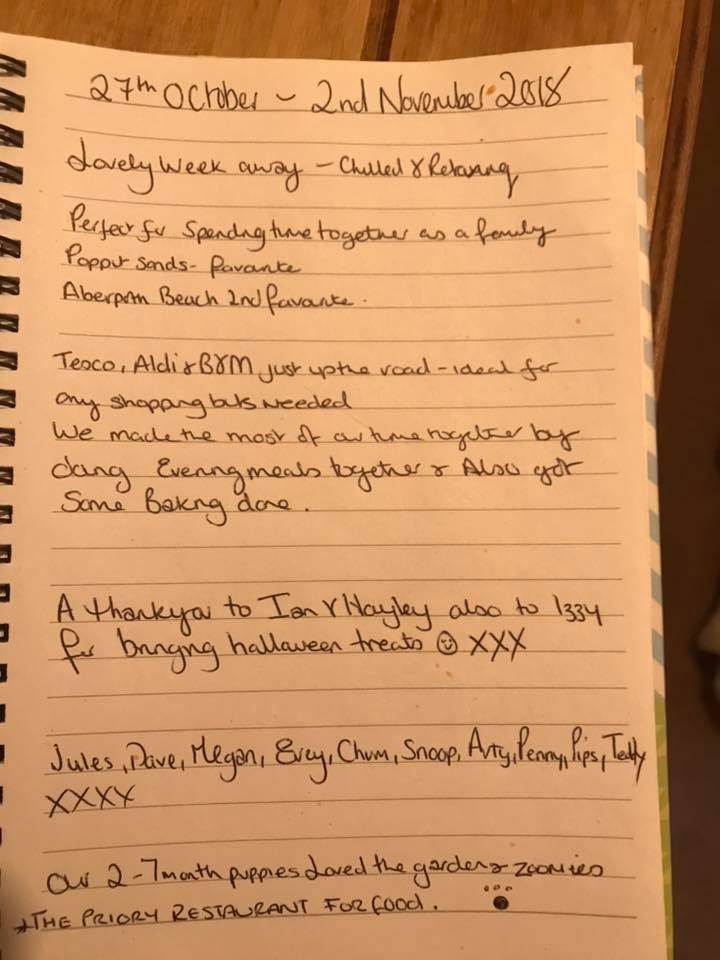 27th October - 2nd November 2018
Lovely Week away - Chilled & Relaxing
Perfect for Spending time together as a family
Poppit Sands - Favourite
Aberporth Beach 2nd Favourite.
Tesco, Aldi & B&M just up the road - ideal for
any shopping bits needed
We made the most of our time together by
doing Evening meals together & Also got
Some Baking done.
A thankyou to Ian & Hayley also to Izzy
for bringing halloween treats ☺ XXX
Jules, Dave, Megan, Evey, Chum, Snoop, Arty, Penny, Pips, Teddy
XXXX
Our 2 - 7 month puppies Loved the garden & zoomies
*THE PRIORY RESTAURANT FOR FOOD.